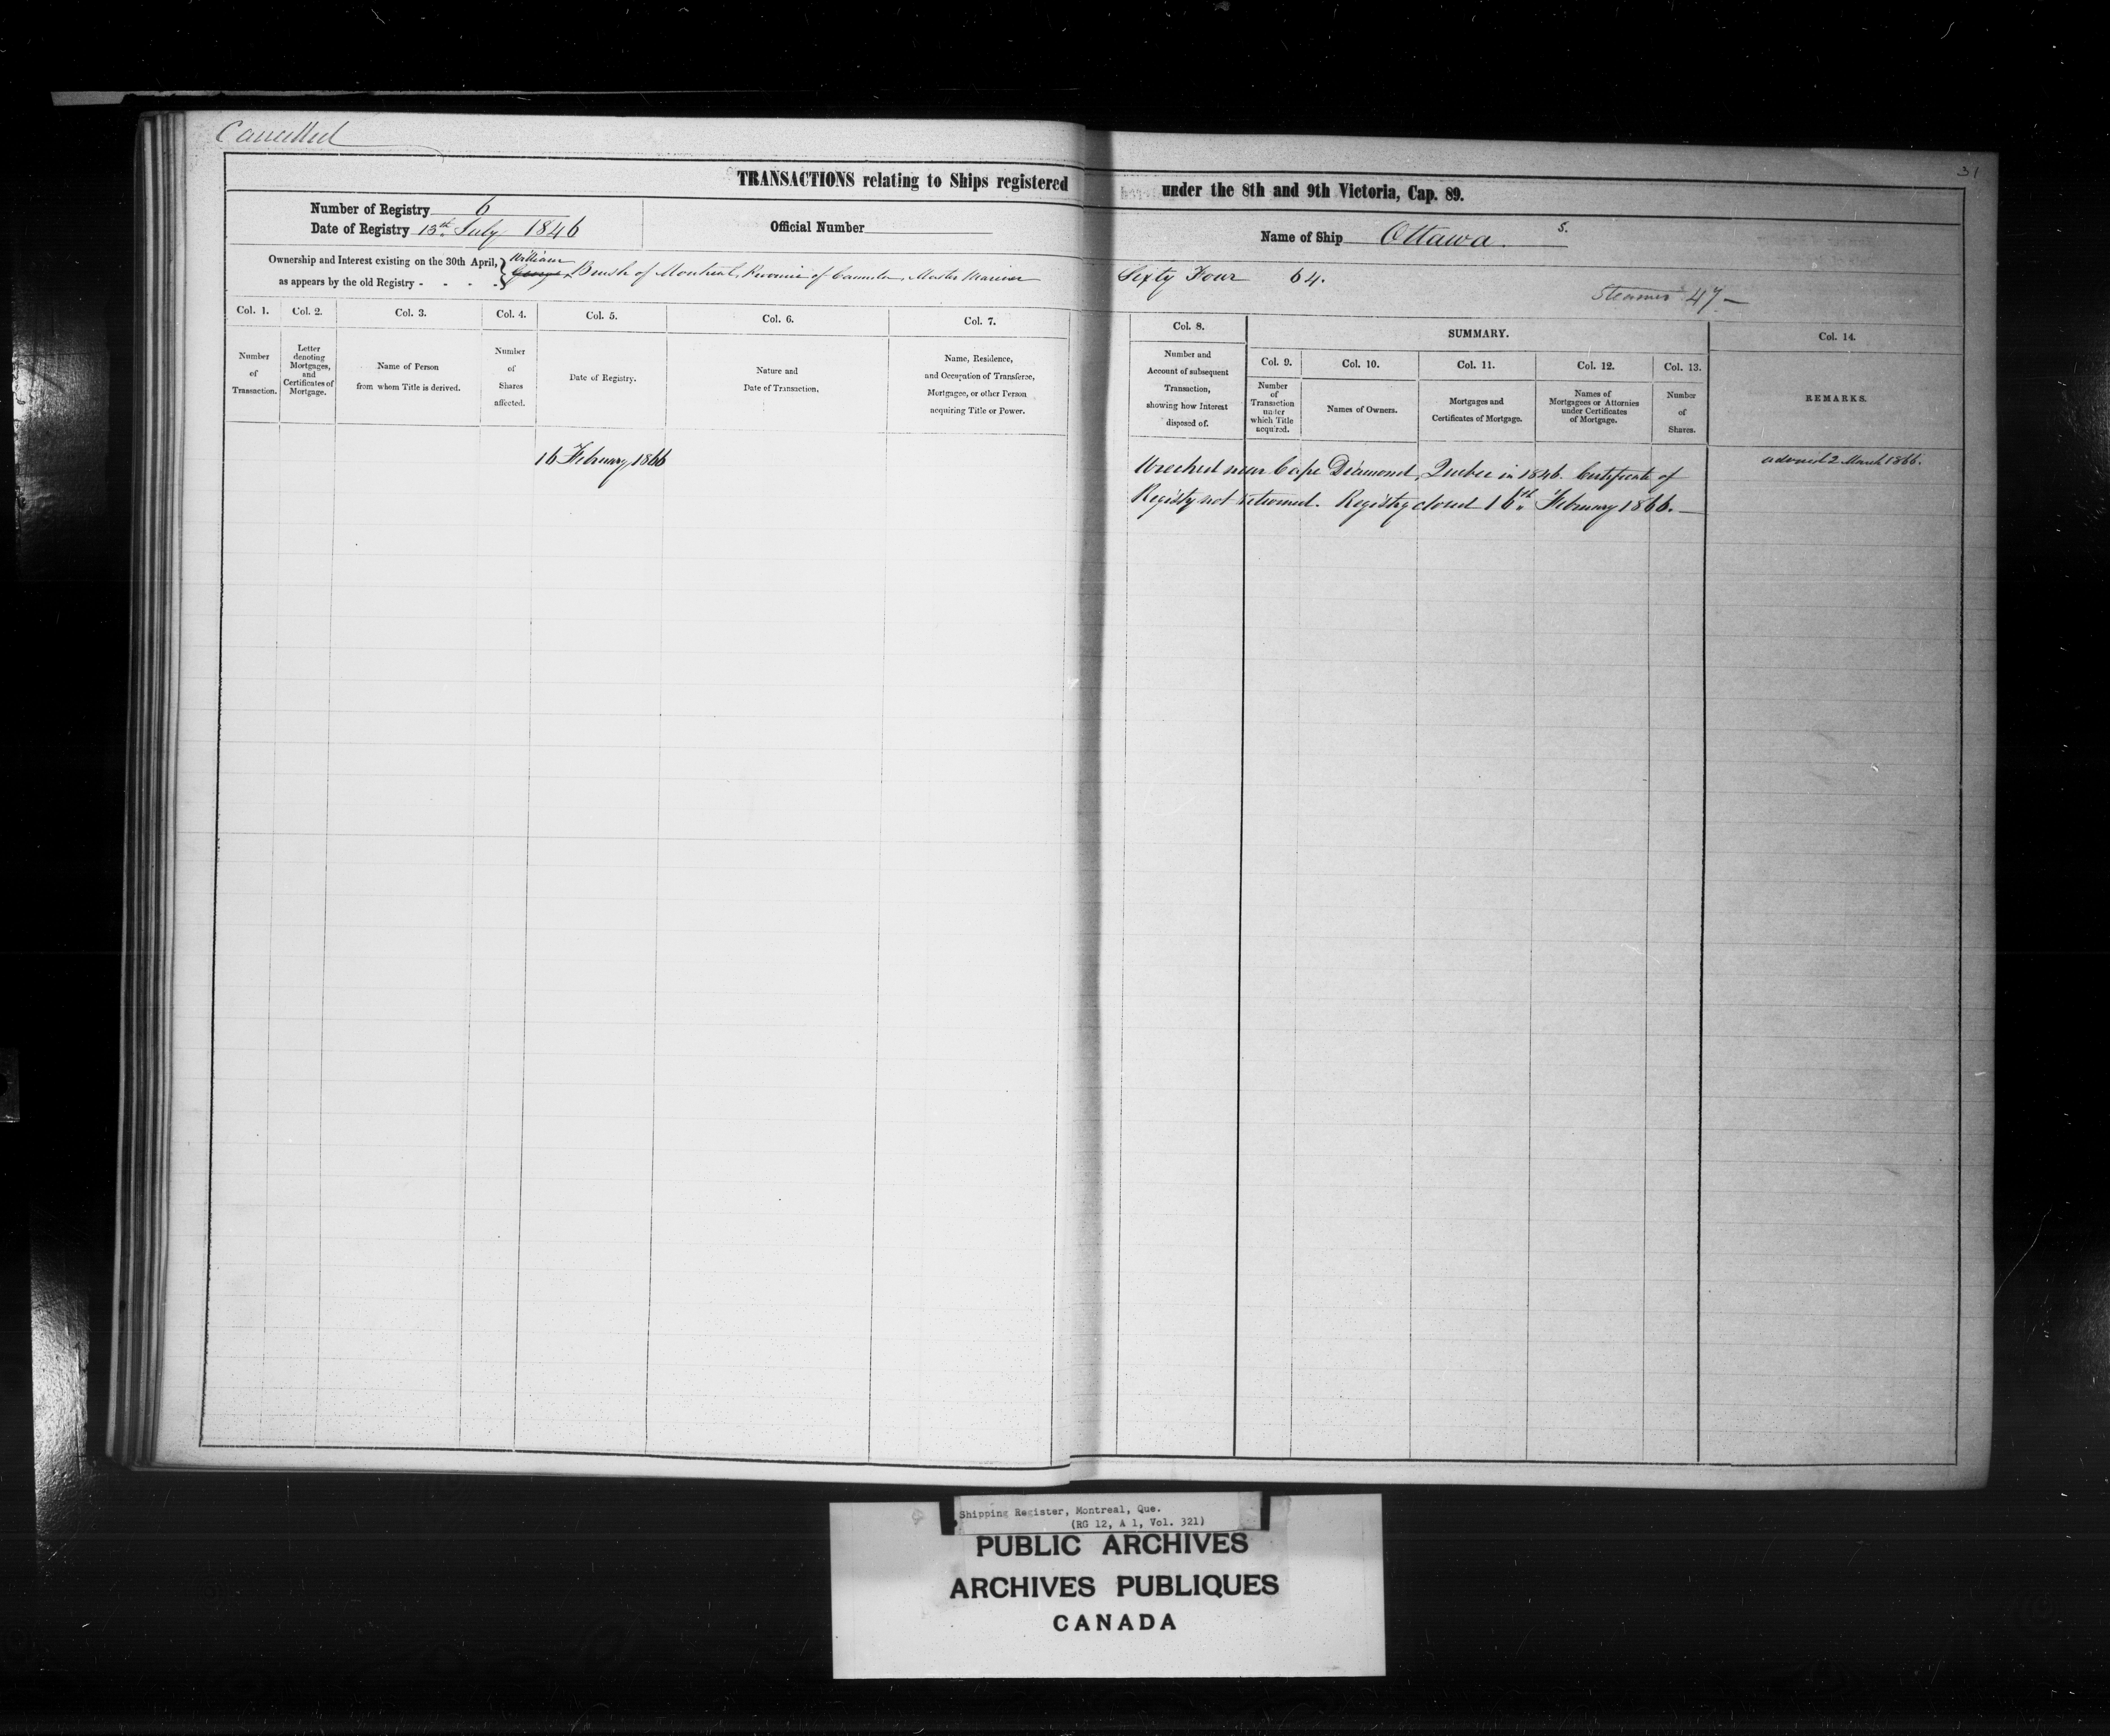 Cancelled
31
TRANSACTIONS relating to Ships registered under the 8th and 9th Victoria, Cap. 89.
Number of Registry 6
Date of Registry 13th July 1846
Official Number
Name of Ship Ottawa S.
Ownership and Interest existing on the 30th April,
as appears by the old Registry - - - -
William
George Brush of Montreal, Province of Canada, Master Mariner Sixty Four 64.
Steamer 47 —
Col. 1.
Number
of
Transaction.
Col. 2.
Letter
denoting
Mortgages,
and
Certificates of
Mortgage.
Col. 3.
Name of Person
from whom Title is derived.
Col. 4.
Number
of
Shares
affected.
Col. 5.
Date of Registry.
Col. 6.
Nature and
Date of Transaction.
Col. 7.
Name, Residence,
and Occupation of Transferee,
Mortgagee, or other Person
acquiring Title or Power.
Col. 8.
Number and
Account of subsequent
Transaction,
showing how Interest
disposed of.
SUMMARY.
Col. 9.
Number
of
Transaction
under
which Title
acquired.
Col. 10.
Names of Owners.
Col. 11.
Mortgages and
Certificates of Mortgage.
Col. 12.
Names of
Mortgagees or Attornies
under Certificates
of Mortgage.
Col. 13.
Number
of
Shares.
Col. 14.
REMARKS.
16 February 1866
Wrecked near Cape Diamond, Quebec in 1846. Certificate of
Registy not returned. Registry closed 16th February 1866. —
advised 2 March 1866.
Shipping Register, Montreal, Que.
(RG 12, A 1, Vol. 321)
PUBLIC ARCHIVES
ARCHIVES PUBLIQUES
CANADA